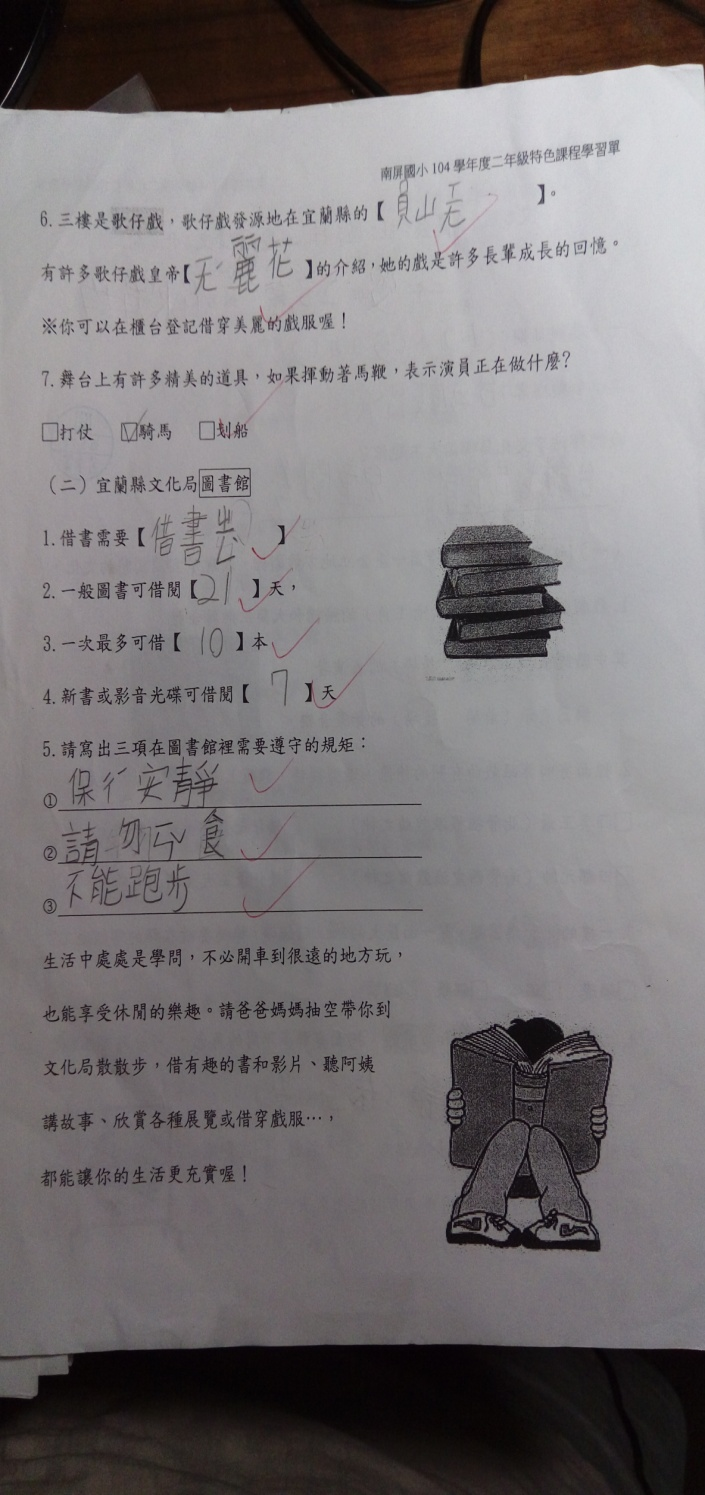 南屏國小104學年度二年級特色課程學習單
6.三樓是歌仔戲，歌仔戲發源地在宜蘭縣的【員山】。
有許多歌仔戲皇帝【麗花】的介紹，她的戲是許多長輩成長的回憶。
※你可以在櫃台登記借穿美麗的戲服喔！
7.舞台上有許多精美的道具，如果揮動著馬鞭，表示演員正在做什麼?
□打仗 ☑騎馬 □划船
（二）宜蘭縣文化局圖書館
1.借書需要【借書】
2.一般圖書可借閱【21】天，
3.一次最多可借【10】本
4.新書或影音光碟可借閱【7】天
5.請寫出三項在圖書館裡需要遵守的規矩：
①保 安靜
②請勿 食
③不能跑步
生活中處處是學問，不必開車到很遠的地方玩，
也能享受休閒的樂趣。請爸爸媽媽抽空帶你到
文化局散散步，借有趣的書和影片、聽阿姨
講故事、欣賞各種展覽或借穿戲服…，
都能讓你的生活更充實喔！